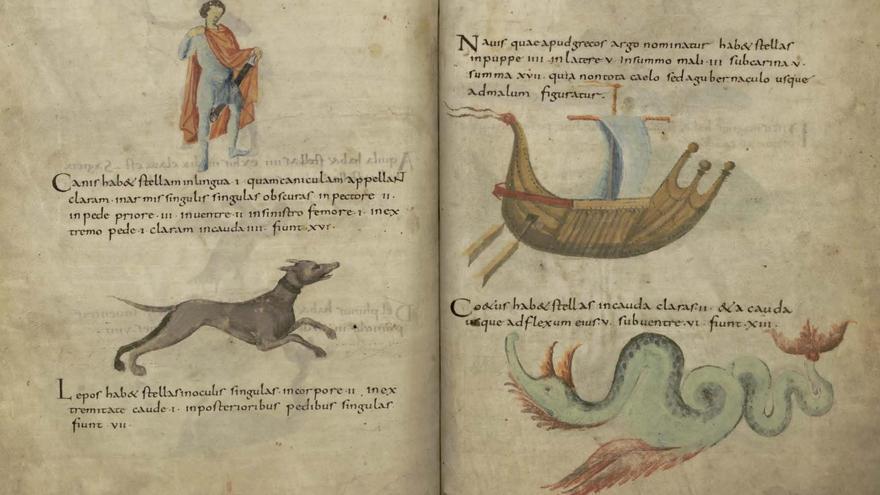 Canis hab& stellam in lingua ·I· quam caniculam appellaN
claram· in armis singulis singulas obscuras· in pectore II·
in pede priore ·III· in ventre ·II· in sinistro femore ·I· in ex
tremo pede ·I· claram in cauda IIII· fiunt· XVI·
Lepos hab& stellas in oculis singulas· in corpore ·II· in ex
tremitate caude ·I· in posterioribus pedibus singulas·
fiunt VII·
Navis quae apud grecos argo nominatur hab& stellas
in puppe IIII· in latere V· in summo mali ·III· sub carina V·
summa XVII· quia non tota caelo sed a gubernaculo usque
ad malum figuratur·
Co&us hab& stellas in cauda claras ·II· &a cauda
usque ad flexum eius ·V· sub ventre ·VI· fiunt· XIII·